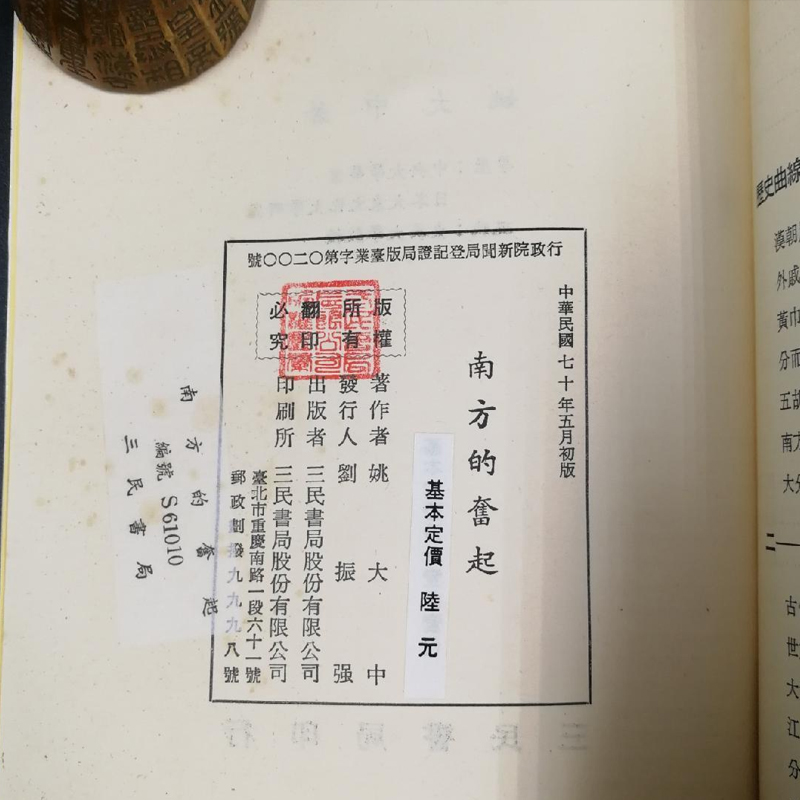 行政院新聞局登記證局版臺業字第〇二〇〇號
中華民國七十年五月初版
南方的奮起
基本定價 陸元
版權所有
翻印必究
著作者 姚大中
發行人 劉振强
出版者 三民書局股份有限公司
印刷所 三民書局股份有限公司
臺北市重慶南路一段六十一號
郵政劃撥九九九八號
南方的奮起
編號 S61010
三民書局
歷史曲線
漢朝
外戚
黃巾
分而
五胡
南方
大分
二—
古
世
大
江
分
三民書局印行